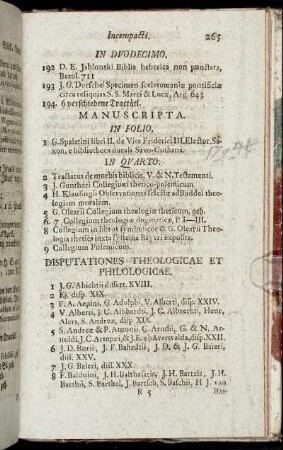 Incompacti. 265
IN DVODECIMO.
192 D. E. Jablonski Biblia hebraica non punctata,
Berol. 711
193 J. G. Dorschei Specimen sceletomaniæ pontificiæ
circa reliquias S. S. Marci & Lucæ, Arg. 643
194. 6 verschiedene Tractätl.
MANUSCRIPTA.
IN FOLIO.
1 G. Spalatini libri II. de Vita Friderici III. Elector. Sa-
xon. e bibliotheca ducali Saxo-Gothana.
IN QVARTO.
2 Tractatus de morbis biblicis, V. & N. Testamenti.
3 J. Guntheri Collegium thetico-polemicum.
4 H. Klausingii Observationes selectæ ad Buddei theo-
logiam moralem.
5 G. Olearii Collegium theologiæ theticum, geb.
6. 7 Collegium theologiæ dogmaticæ, P. I—III.
8 Collegium in libros symbolicos & G. Olearii Theo-
logia thetica juxta systema Bayeri exposita.
9 Collegium Polemicum.
DISPUTATIONES THEOLOGICAE ET
PHILOLOGICAE.
1 J. G. Abichtii dissert. XVIII.
2 Ej. disp. XIX.
3 F. A. Aepini, G. Adolphi, V. Alberti, disp. XXIV.
4 V. Alberti, J. C. Albhardts, J. C. Albrecht, Henr.
Alers, S. Andreæ, disp. XIX.
5 S. Andreæ & P. Antonii, C. Arndii, G. & N. Ar-
noldi, J. C. Artopæi, & J. E. ab Aversvalda, disp. XXII.
6 J. D. Bærii, J. F. Bahrdtii, J. D. & J. G. Baieri,
diss. XXV.
7 J. G. Baieri, diss. XXX.
8 F. Balduini, J. H. Balthasaris, J. H. Bartels, J. H.
Barthii, S. Barthel, J. Bartsch, S. Baschii, H. J. van
R 5